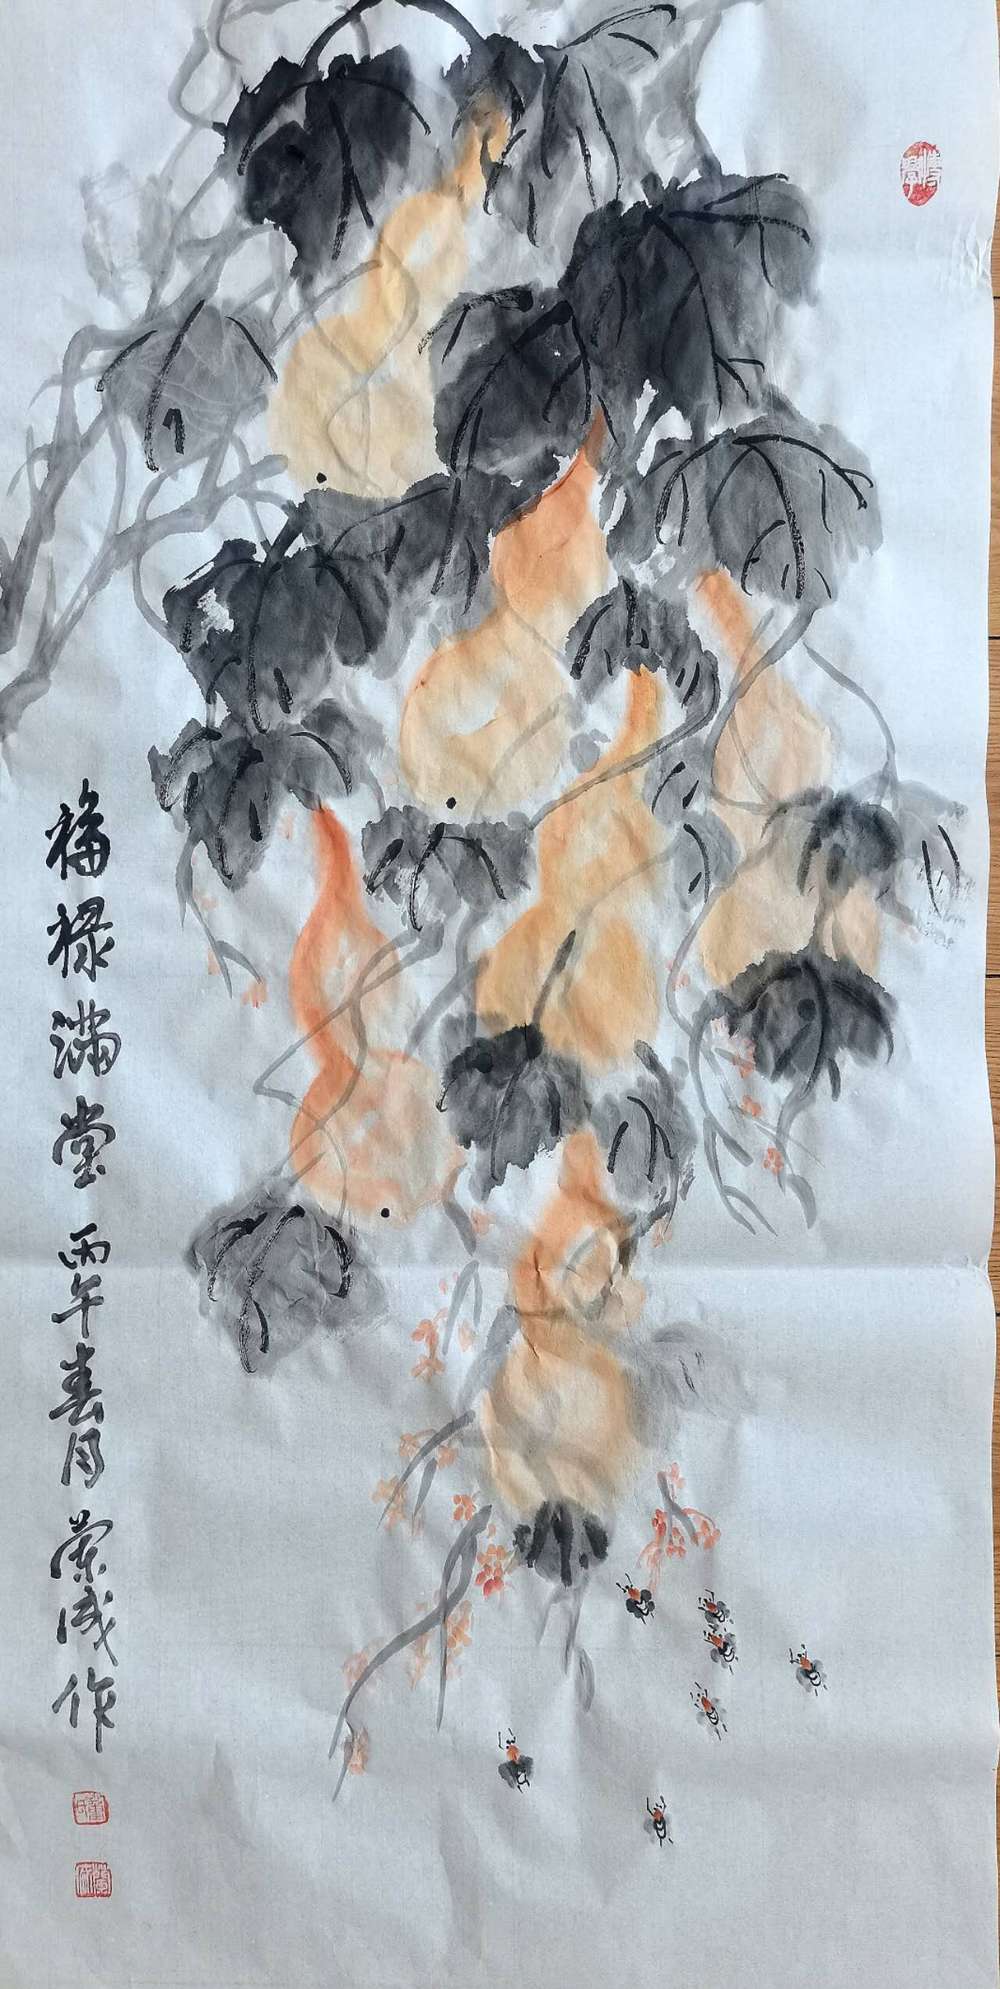 福禄满堂 丙午春月 荣成作